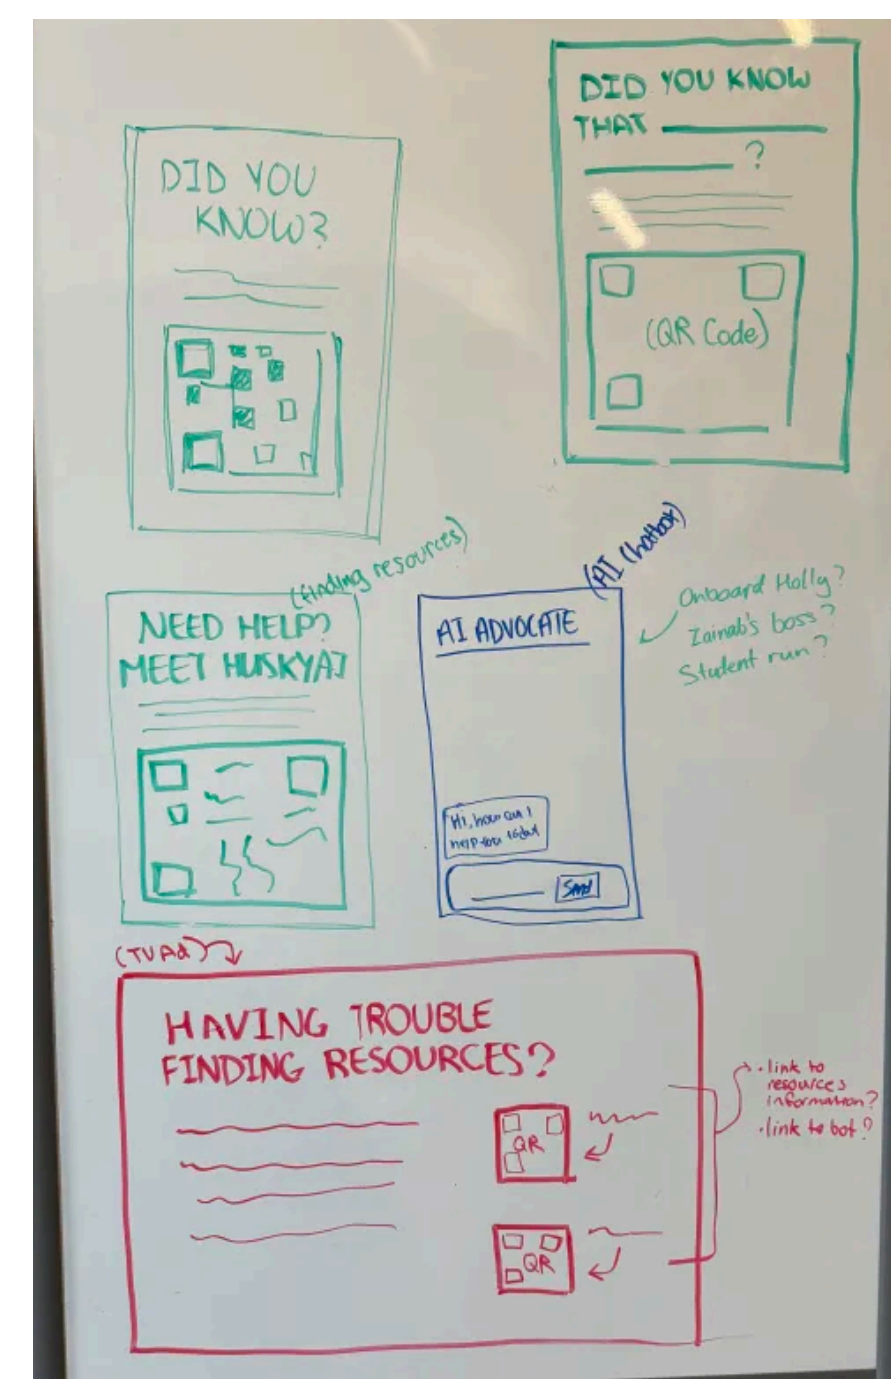 DID YOU
KNOW?
DID YOU KNOW
THAT
?
(QR Code)
(finding resources)
NEED HELP?
MEET HUSKYAI
(AI Chatbox)
AI ADVOCATE
Hi, how can I
help you today
Send
Onboard Holly?
Zainab's boss?
Student run?
(TV Ad)
HAVING TROUBLE
FINDING RESOURCES?
QR
QR
• link to
resources
information?
• link to bot?